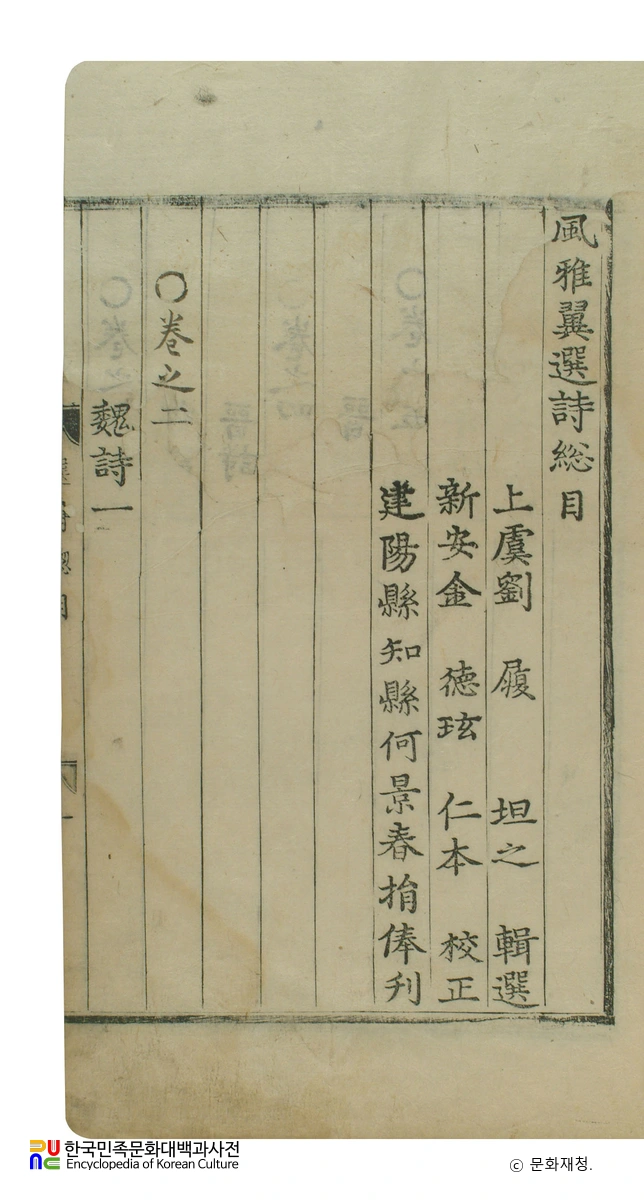 風雅翼選詩総目
上虞劉 履 坦之 輯選
新安金 德玹 仁本 校正
建陽縣知縣何景春捐俸刋
〇卷之二
魏詩一
한국민족문화대백과사전
Encyclopedia of Korean Culture
© 문화재청.